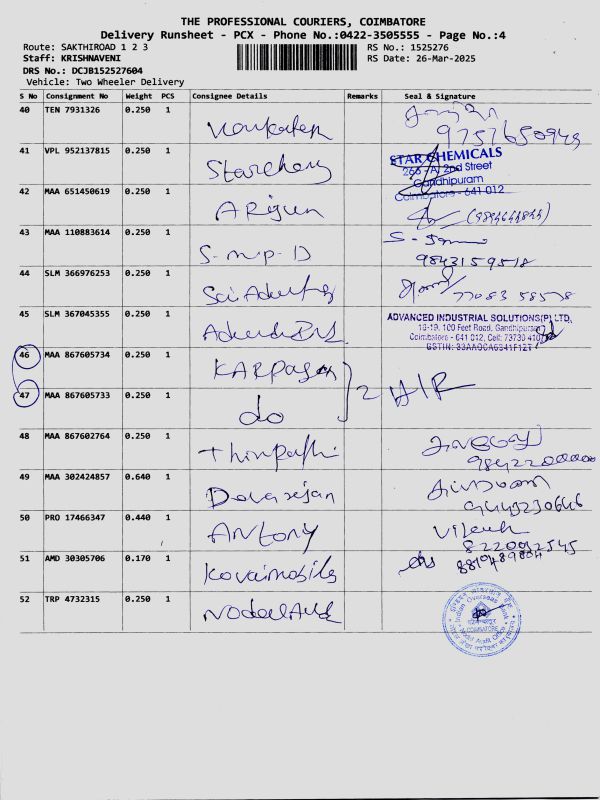 THE PROFESSIONAL COURIERS, COIMBATORE
Delivery Runsheet - PCX - Phone No.:0422-3505555 - Page No.:4
Route: SAKTHIROAD 1 2 3 RS No.: 1525276
Staff: KRISHNAVENI RS Date: 26-Mar-2025
DRS No.: DCJB152527604
Vehicle: Two Wheeler Delivery
S No Consignment No Weight PCS Consignee Details Remarks Seal & Signature
40 TEN 7931326 0.250 1 Venkatesh
9757650949
41 VPL 952137815 0.250 1 Starchem STAR CHEMICALS
266-A, 2nd Street
Gandhipuram
Coimbatore - 641 012
42 MAA 651450619 0.250 1 Arjun
43 MAA 110883614 0.250 1 S-m-p-D
9843159518
44 SLM 366976253 0.250 1 Sai
77083 58578
45 SLM 367045355 0.250 1 ADVANCED INDUSTRIAL SOLUTIONS(P) LTD,
18-19, 100 Feet Road, Gandhipuram,
Coimbatore - 641 012, Cell: 73730 410
GSTIN: 33AAOCA6341F1ZT
46 MAA 867605734 0.250 1 KARPAGAM
47 MAA 867605733 0.250 1 do 2 HIR
48 MAA 867602764 0.250 1 Thirupathi
9842200000
49 MAA 302424857 0.640 1 Devarajan
9443230646
50 PRO 17466347 0.440 1 Antony
8220092545
51 AMD 30305706 0.170 1 Kovaimobils
8819489804
52 TRP 4732315 0.250 1
Indian Overseas Bank
COIMBATORE